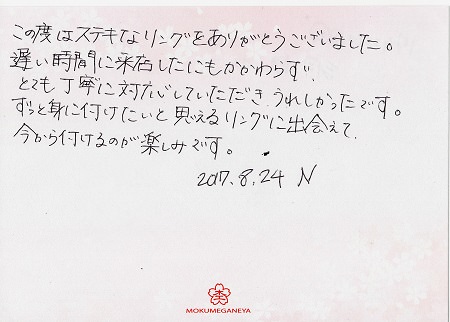 この度はステキなリングをありがとうございました。
遅い時間に来店したにもかかわらず、
とても丁寧に対応していただき うれしかったです。
ずっと身に付けたいと思えるリングに出会えて
今から付けるのが楽しみです。
2017.8.24 N
MOKUMEGANEYA